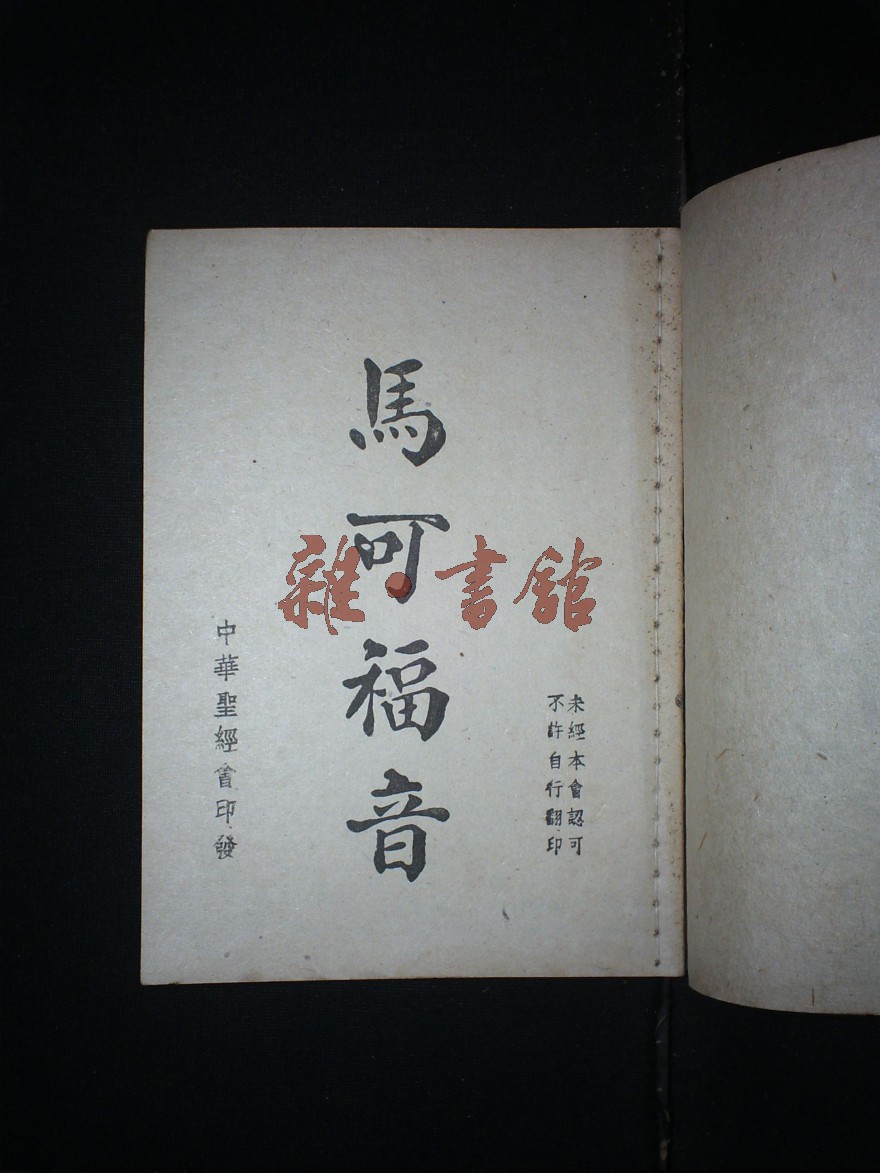 未經本會認可
不許自行翻印
馬可福音
中華聖經會印發
雜·書館